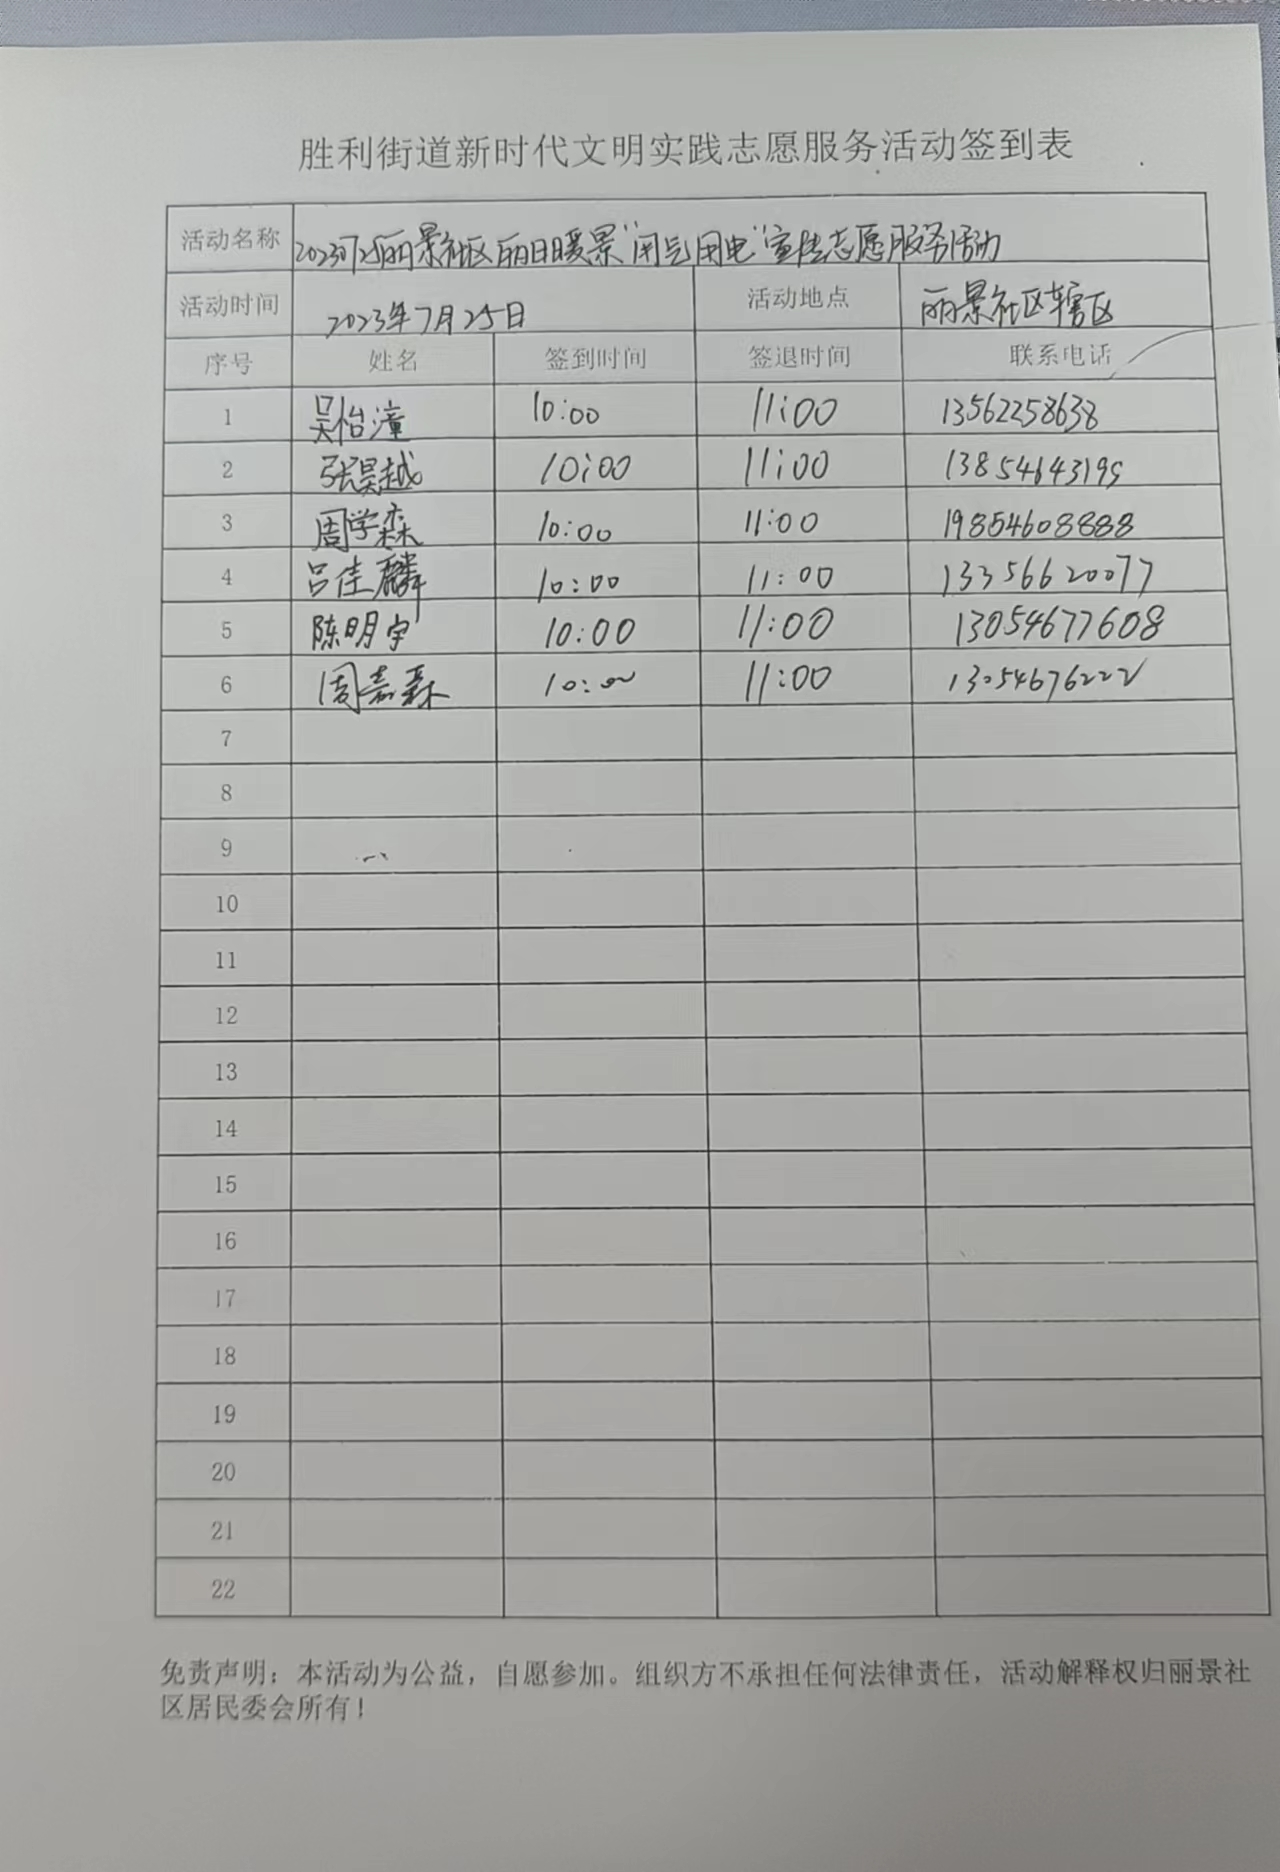 胜利街道新时代文明实践志愿服务活动签到表
活动名称 丽景社区丽日暖景"用气用电"宣传志愿服务活动
活动时间 2023年7月25日 活动地点 丽景社区辖区
序号 姓名 签到时间 签退时间 联系电话
1 吴怡潼 10:00 11:00 13562258638
2 张昊越 10:00 11:00 13854643195
3 周学森 10:00 11:00 19854608888
4 吕佳麟 10:00 11:00 13356620077
5 陈明宇 10:00 11:00 13054677608
6 周嘉森 10:00 11:00 13054676222
7
8
9
10
11
12
13
14
15
16
17
18
19
20
21
22
免责声明：本活动为公益，自愿参加。组织方不承担任何法律责任，活动解释权归丽景社
区居民委会所有！